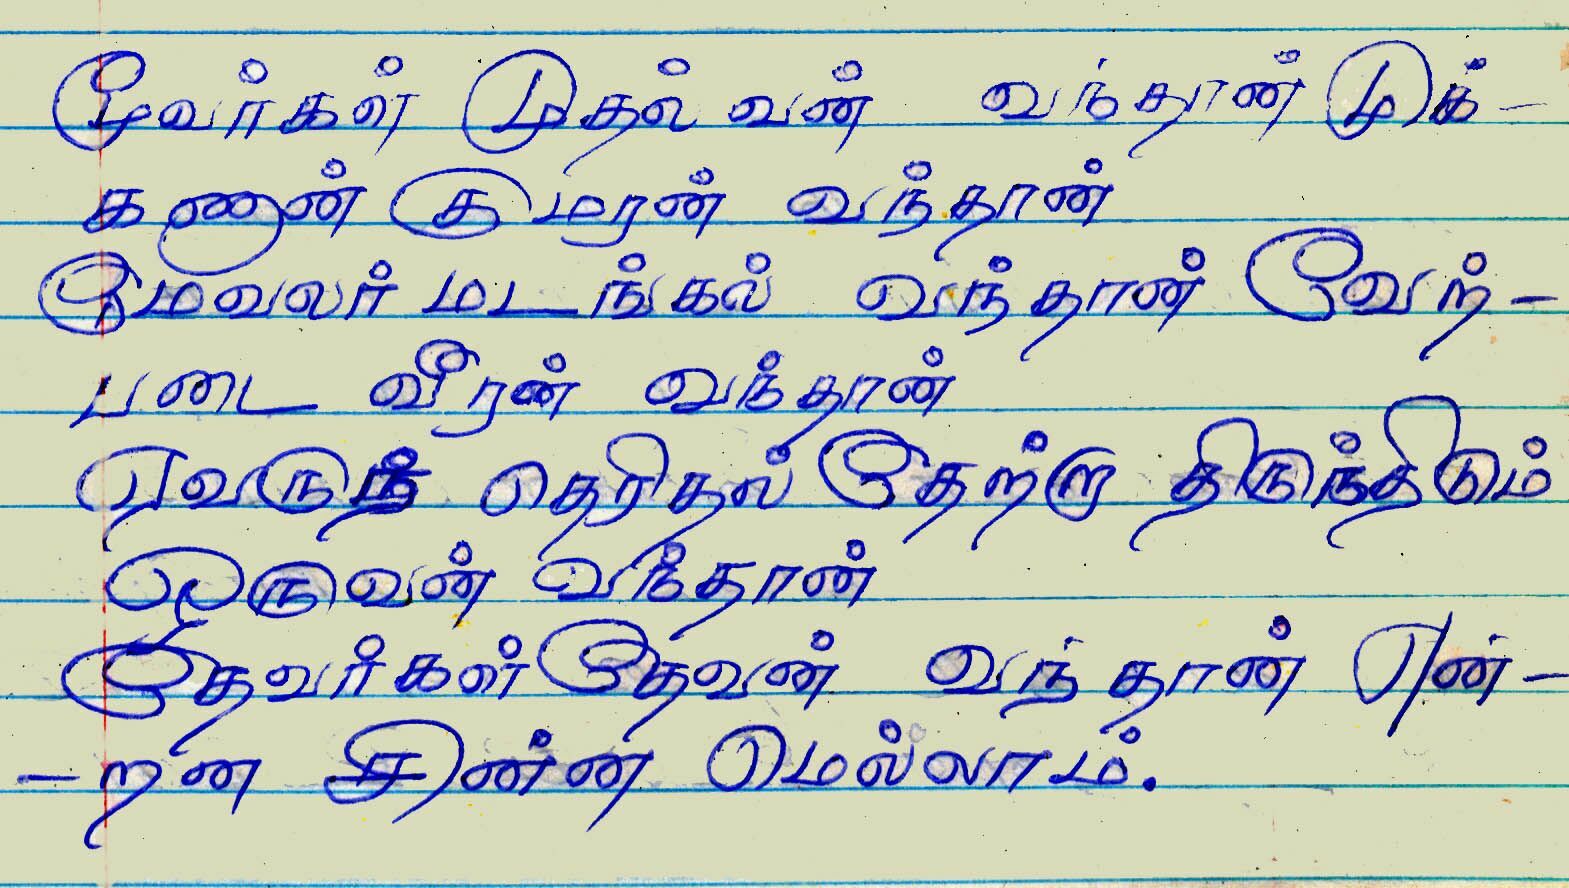 மூவர்கள் முதல்வன் வந்தான் முக்-
கணான் குமரன் வந்தான்
மேவலர் மடங்கல் வந்தான் வேற்-
படை வீரன் வந்தான்
ஏவருந் தெரிதல் தேற்றா திருந்திடும்
ஒருவன் வந்தான்
தேவர்கள் தேவன் வந்தான் என்-
-றன சின்ன மெல்லாம்.